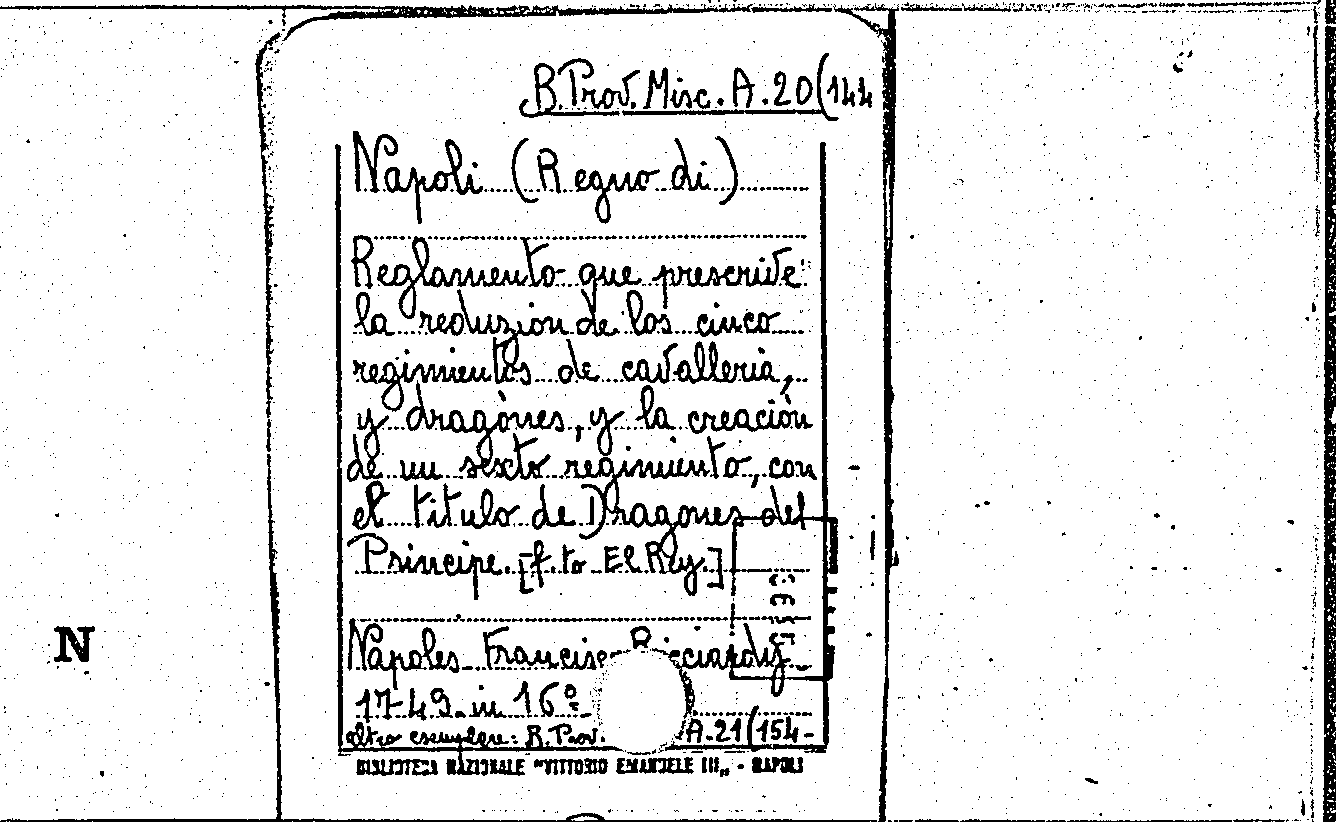 B. Prov. Misc. A. 20(144
Napoli (Regno di)
Reglamento que prescrive
la reduzion de los cinco
regimientos de cavalleria,
y dragònes, y la creaciòn
de un sexto regimiento, con
el titulo de Dragones del
Principe. [f.to El Rey.]
N
Napoles Francisco Ricciardy
1749 in 16º
altro esemplare: B. Prov. A. 21(154-
BIBLIOTECA NAZIONALE "VITTORIO EMANUELE III„ - NAPOLI